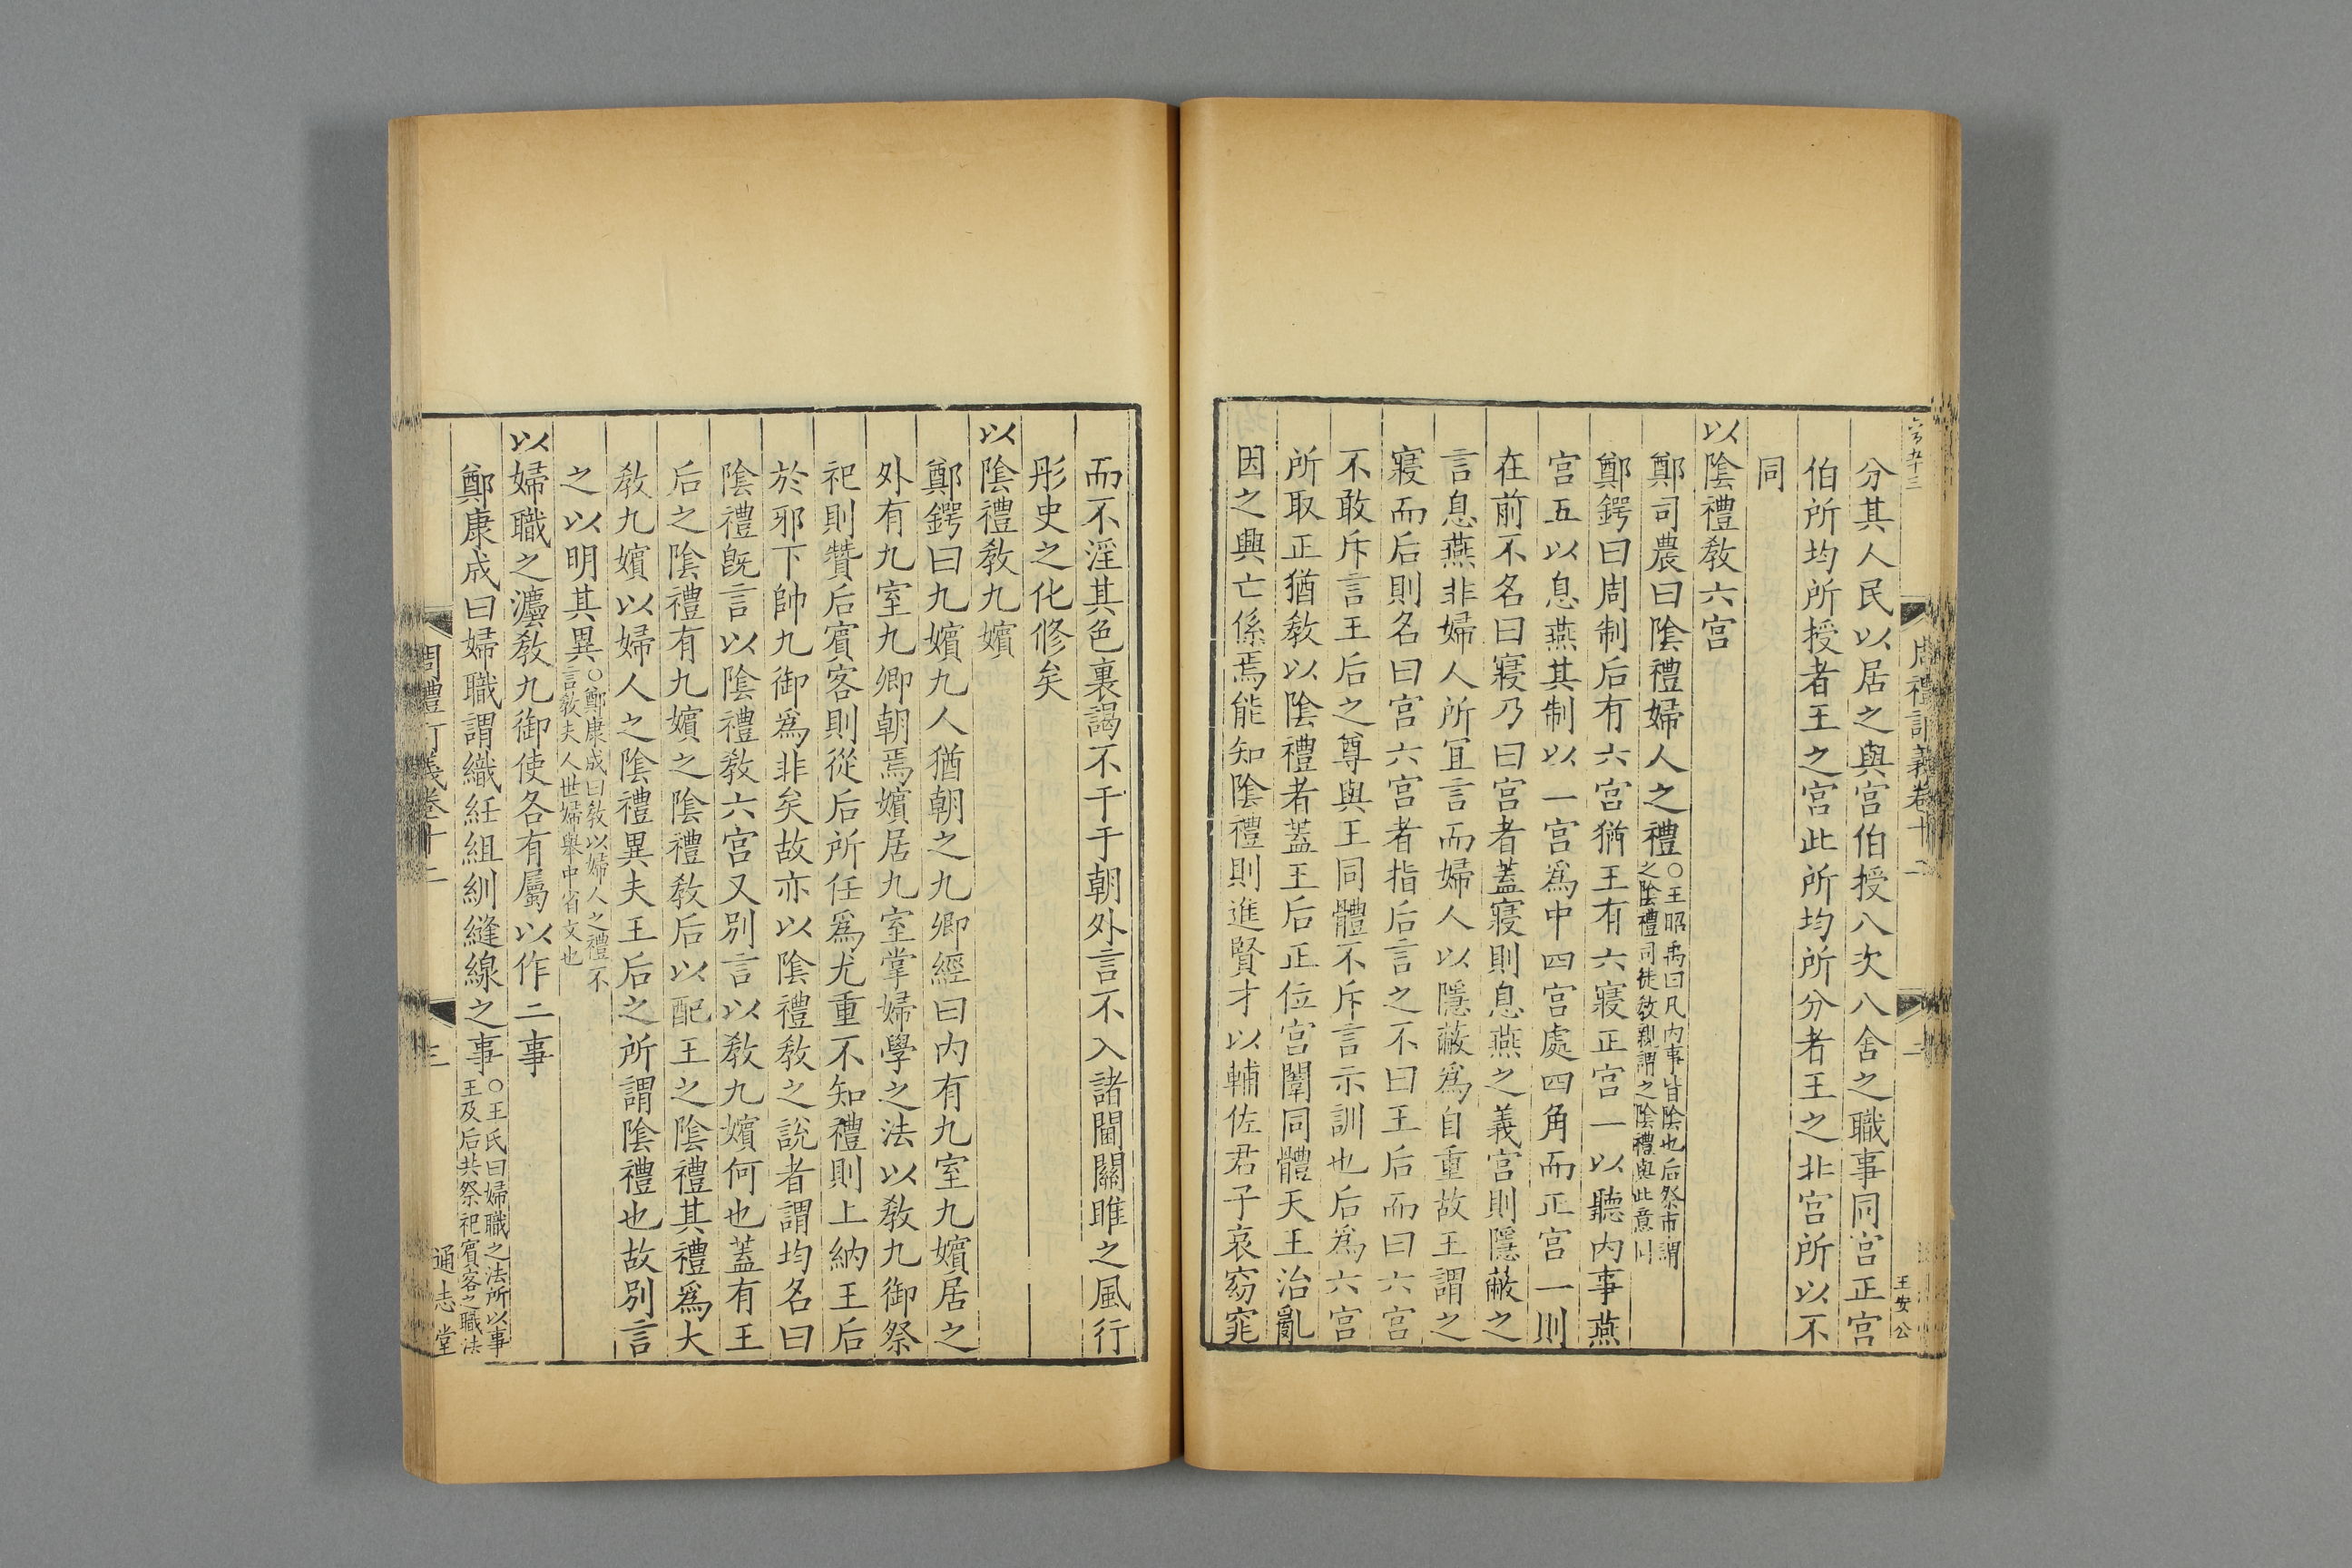 分其人民以居之與宮伯授八次八舍之職事同宮正宮
伯所均所授者王之宮此所均所分者王之北宮所以不
同
以陰禮敎六宮
鄭司農曰陰禮婦人之禮○王昭禹曰凡内事皆陰也后祭市謂
之陰禮司徒敎親謂之陰禮與此意同
鄭鍔曰周制后有六宮猶王有六寢正宮一以聽内事燕
宮五以息燕其制以一宮爲中四宮處四角而正宮一則
在前不名曰寢乃曰宮者蓋寢則息燕之義宮則隱蔽之
言息燕非婦人所宜言而婦人以隱蔽爲自重故王謂之
寢而后則名曰宮六宮者指后言之不曰王后而曰六宮
不敢斥言王后之尊與王同體不斥言示訓也后爲六宮
所取正猶敎以陰禮者蓋王后正位宮闈同體天王治亂
因之興亡係焉能知陰禮則進賢才以輔佐君子哀窈窕
周禮訂義卷十二
二
王安公
而不淫其色裏謁不干于朝外言不入諸閫關雎之風行
彤史之化修矣
以陰禮敎九嬪
鄭鍔曰九嬪九人猶朝之九卿經曰内有九室九嬪居之
外有九室九卿朝焉嬪居九室掌婦學之法以敎九御祭
祀則贊后賓客則從后所任爲尤重不知禮則上納王后
於邪下帥九御爲非矣故亦以陰禮敎之説者謂均名曰
陰禮旣言以陰禮敎六宮又別言以敎九嬪何也蓋有王
后之陰禮有九嬪之陰禮敎后以配王之陰禮其禮爲大
敎九嬪以婦人之陰禮異夫王后之所謂陰禮也故別言
之以明其異○鄭康成曰敎以婦人之禮不
言敎夫人世婦舉中省文也
以婦職之灋敎九御使各有屬以作二事
鄭康成曰婦職謂織紝組紃縫線之事○王氏曰婦職之法所以事
王及后共祭祀賓客之職法
周禮訂義卷十二
三
通志堂